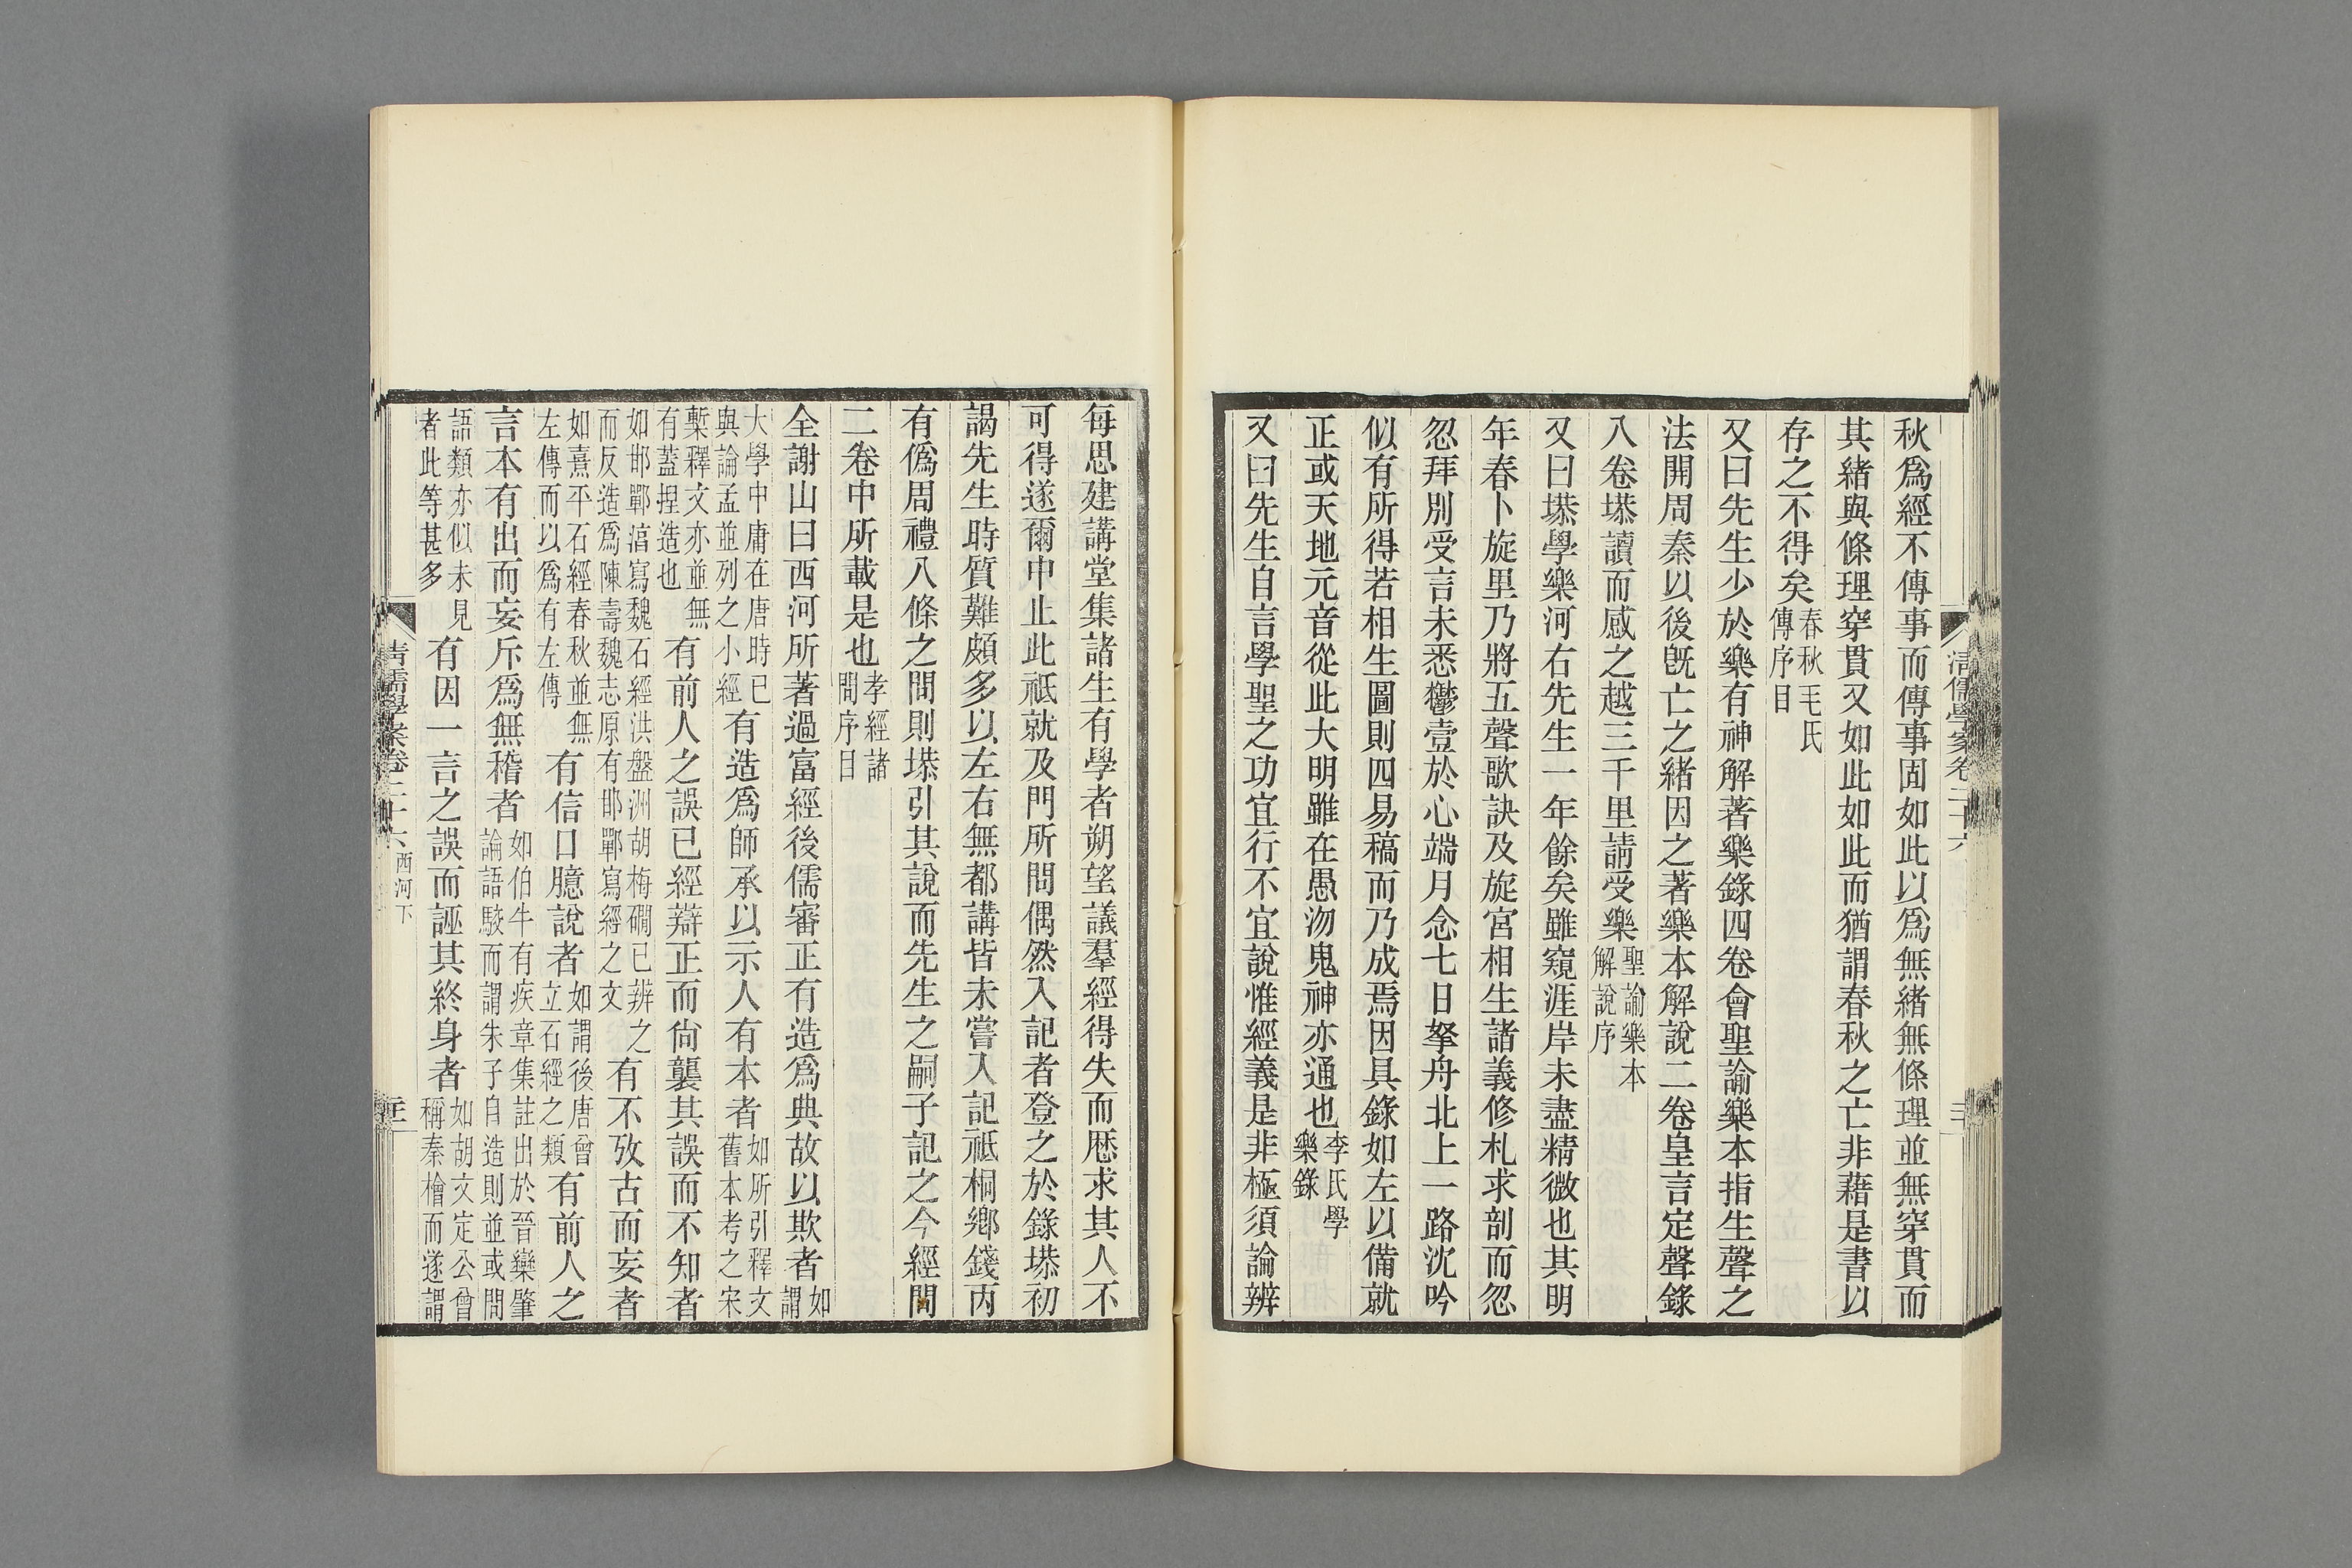 清儒學案卷二十六
秋爲經不傳事而傳事固如此以爲無緒無條理並無穿貫而
其緒與條理穿貫又如此如此而猶謂春秋之亡非藉是書以
存之不得矣春秋毛氏傳序目
又曰先生少於樂有神解著樂錄四卷會聖諭樂本指生聲之
法開周秦以後旣亡之緒因之著樂本解說二卷皇言定聲錄
八卷塨讀而感之越三千里請受樂聖諭樂本解說序
又曰塨學樂河右先生一年餘矣雖窺涯岸未盡精微也其明
年春卜旋里乃將五聲歌訣及旋宮相生諸義修札求剖而忽
忽拜別受言未悉鬱壹於心端月念七日拏舟北上一路沈吟
似有所得若相生圖則四易稿而乃成焉因具錄如左以備就
正或天地元音從此大明雖在愚沕鬼神亦通也李氏學樂錄
又曰先生自言學聖之功宜行不宜說惟經義是非極須論辨
每思建講堂集諸生有學者朔望議羣經得失而厯求其人不
可得遂爾中止此祗就及門所問偶然入記者登之於錄塨初
謁先生時質難頗多以左右無都講皆未嘗入記祗桐鄕錢丙
有僞周禮八條之問則塨引其說而先生之嗣子記之今經問
二卷中所載是也孝經諸問序目
全謝山曰西河所著過富經後儒審正有造爲典故以欺者如謂
大學中庸在唐時已與論孟並列之小經有造爲師承以示人有本者如所引釋文舊本考之宋
槧釋文亦並無有蓋捏造也有前人之誤已經辯正而尙襲其誤而不知者
如邯鄲淳寫魏石經洪盤洲胡梅磵已辨之而反造爲陳壽魏志原有邯鄲寫經之文有不攷古而妄者
如熹平石經春秋並無左傳而以爲有左傳有信口臆說者如謂後唐曾立石經之類有前人之
言本有出而妄斥爲無稽者如伯牛有疾章集註出於晉欒肇論語駮而謂朱子自造則並或問
語類亦似未見者此等甚多有因一言之誤而誣其終身者如胡文定公曾稱秦檜而遂謂
清儒學案卷二十六 西河下